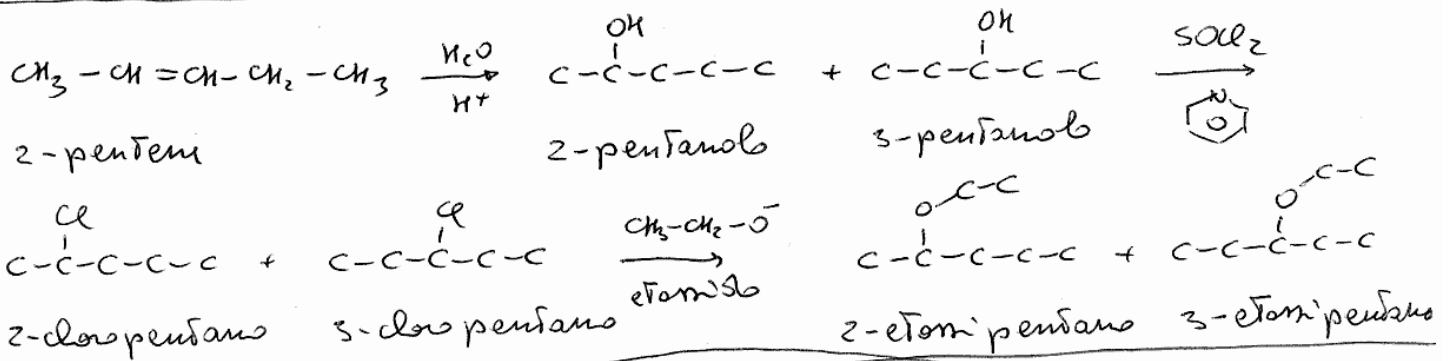 OH OH
CH₃ – CH = CH – CH₂ – CH₃ H₂O H⁺ C–C–C–C–C + C–C–C–C–C SOCl₂ N
2-pentene 2-pentanolo 3-pentanolo
Cl Cl O C–C O C–C
C–C–C–C–C + C–C–C–C–C CH₃–CH₂–O⁻ etossido C–C–C–C–C + C–C–C–C–C
2-cloropentano 3-cloropentano 2-etossipentano 3-etossipentano